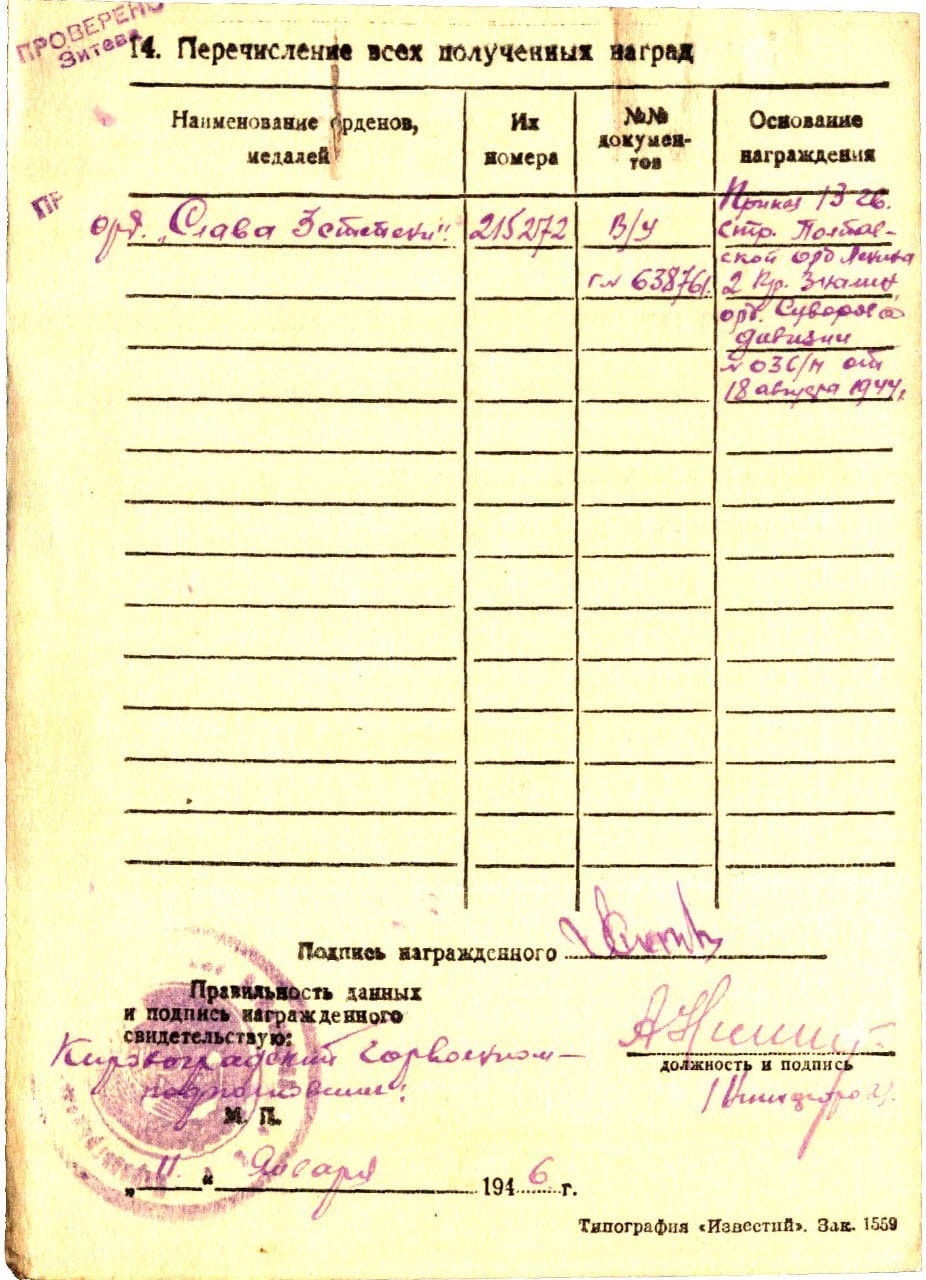 ПРОВЕРЕНО
Зитева
14. Перечисление всех полученных наград
Наименование орденов, медалей
Их номера
№№ докумен-тов
Основание награждения
орд. „Слава 3 степени". 215272 В/у
г № 638761.
Приказ 13 гв.
стр. Полтав-
ской орд Ленина
2 Кр. Знамен
орд. Суворова
дивизии
№ 036/н от
18 августа 1944г.
ПР
Подпись награжденного
Правильность данных
и подпись награжденного
свидетельствую:
Кировоградский горвоенком –
подполковник:
должность и подпись
М. П.
„ 11 “ Января 1946 г.
Типография «Известий». Зак. 1559